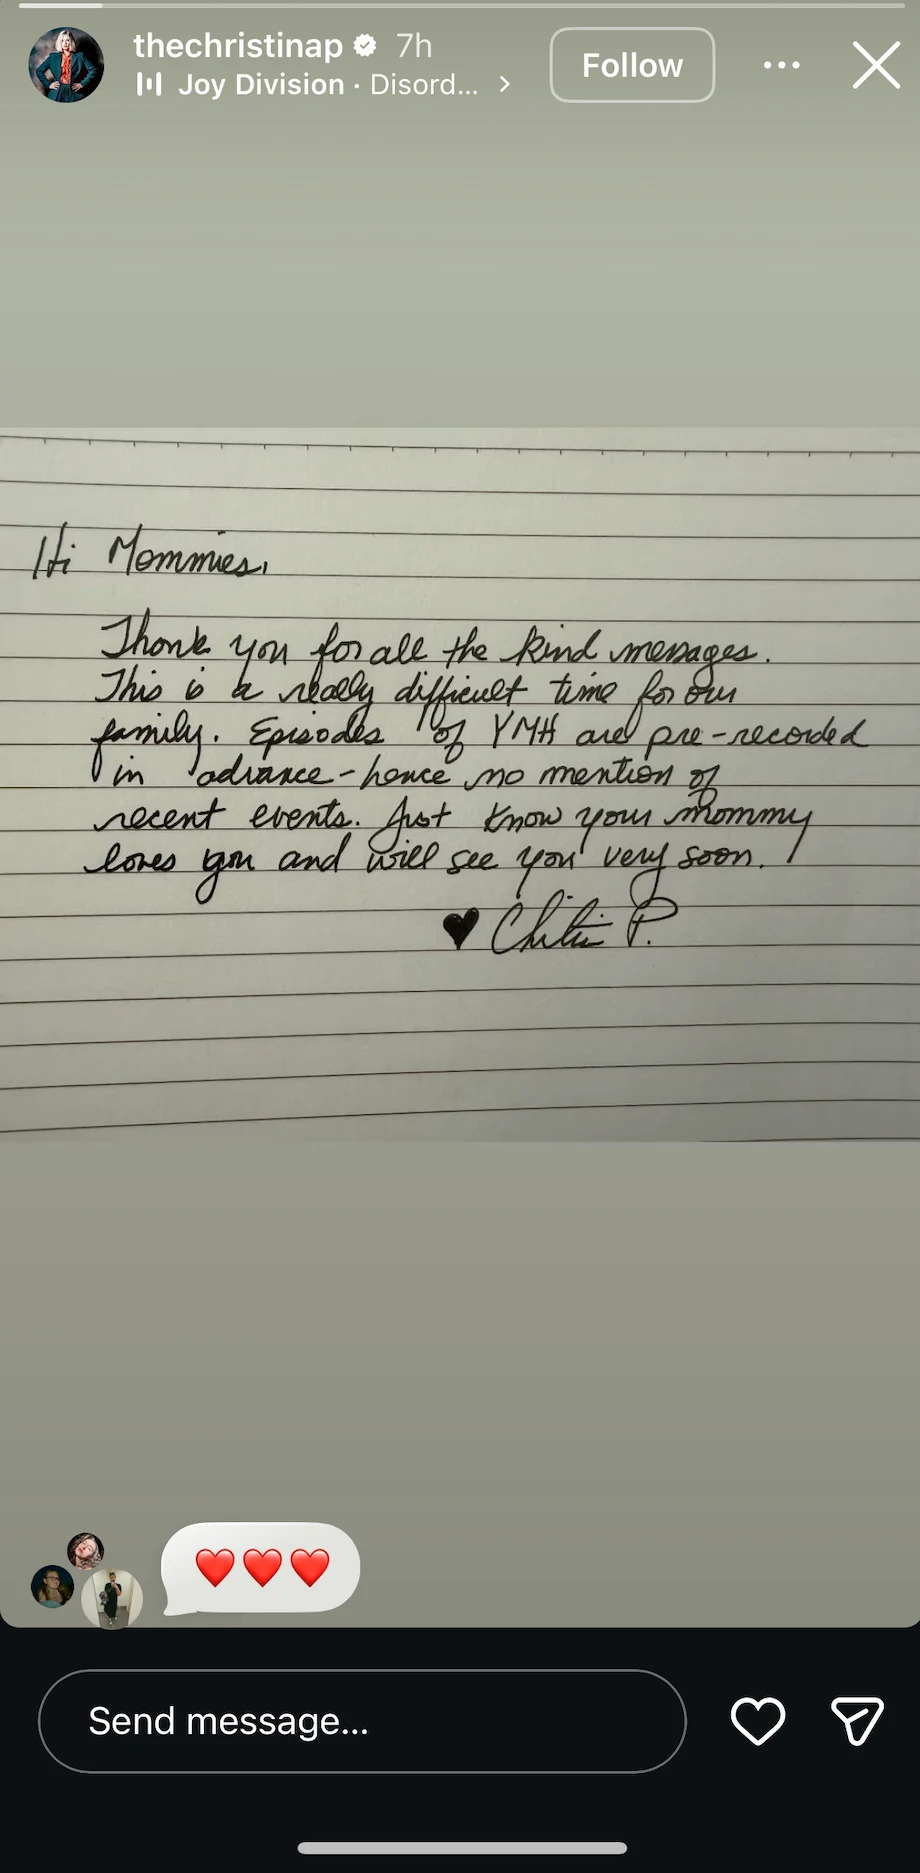 thechristinap 7h
Joy Division · Disord... >
Follow
Hi Mommies,
Thank you for all the kind messages.
This is a really difficult time for our
family. Episodes of YMH are pre-recorded
in advance - hence no mention of
recent events. Just know your mommy
loves you and will see you very soon.
♥ Christina P.
❤️❤️❤️
Send message...